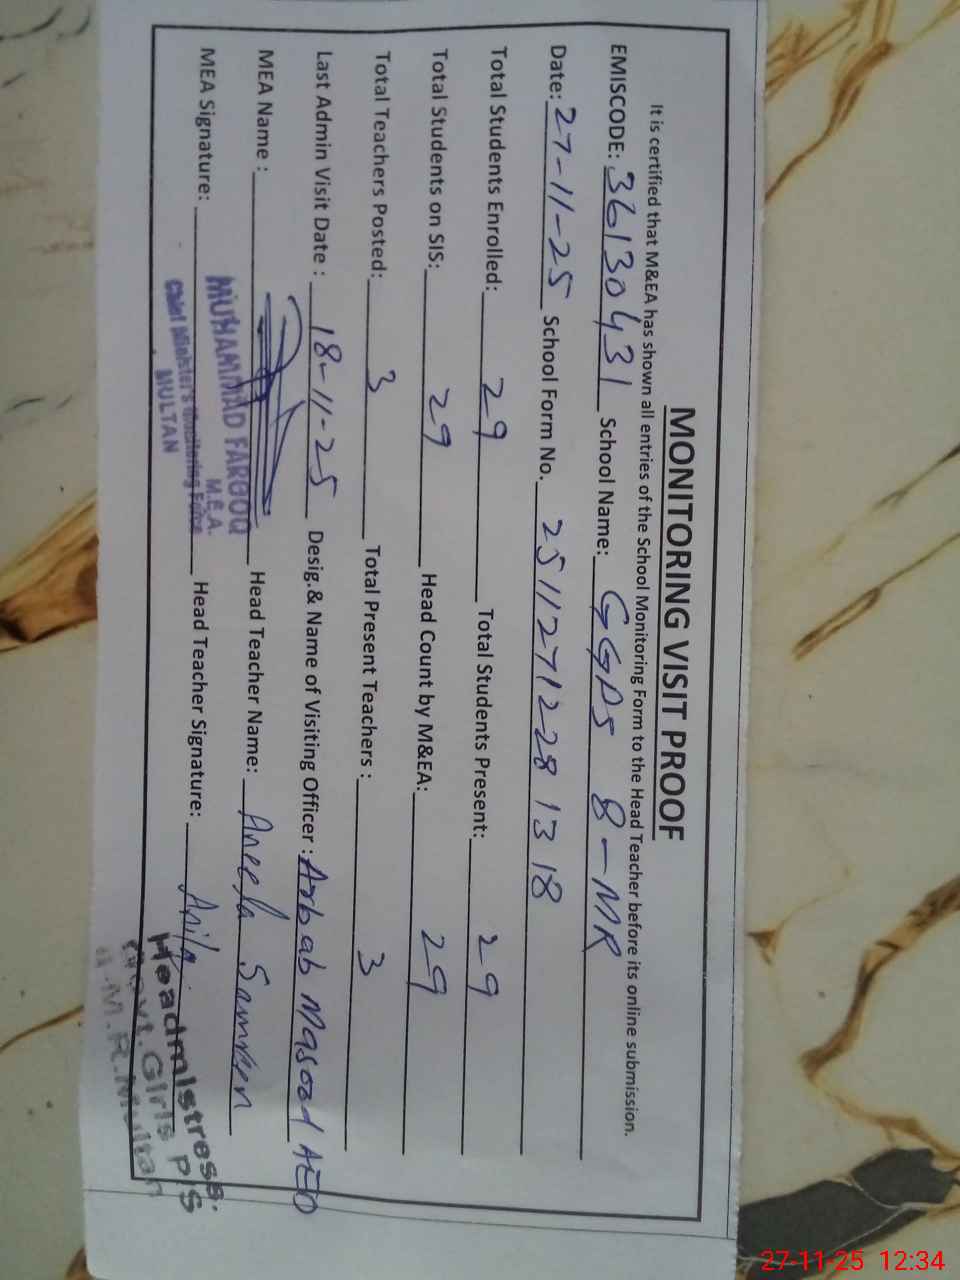 MONITORING VISIT PROOF
It is certified that M&EA has shown all entries of the School Monitoring Form to the Head Teacher before its online submission.
EMISCODE: 36130431 School Name: GGPS 8-MR
Date: 27-11-25 School Form No. 251127122813 18
Total Students Enrolled: 29 Total Students Present: 29
Total Students on SIS: 29 Head Count by M&EA: 29
Total Teachers Posted: 3 Total Present Teachers : 3
Last Admin Visit Date : 18-11-25 Desig.& Name of Visiting Officer : Arbab Masood AEO
MEA Name : Head Teacher Name: Aneela Samreen
MUHAMMAD FAROOQ
M.E.A.
MEA Signature: Head Teacher Signature: Anila
Chief Minister's Monitoring Force
MULTAN
Headmistress.
Govt. Girls P/S
8-M.R. Multan
27-11-25 12:34